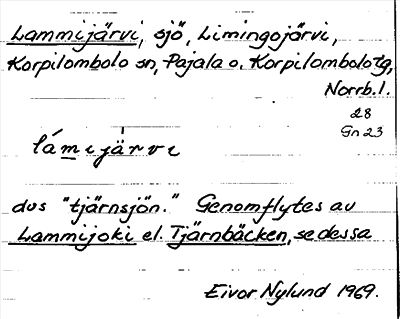 Lammijärvi, sjö, Limingojärvi,
Korpilombolo sn, Pajala o. Korpilombolo tg,
Norrb. l.
28
Gn 23
lámıjärvı
dvs "tjärnsjön." Genomflytes av
Lammijoki el. Tjärnbäcken, se dessa
Eivor Nylund 1969.